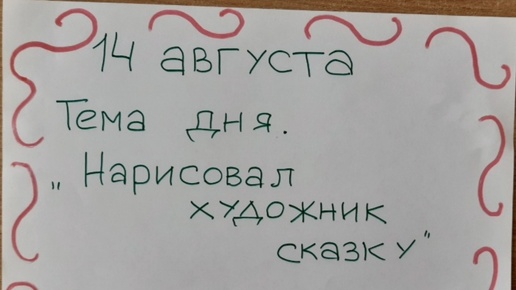 14 августа
Тема дня.
„Нарисовал
художник
сказку"